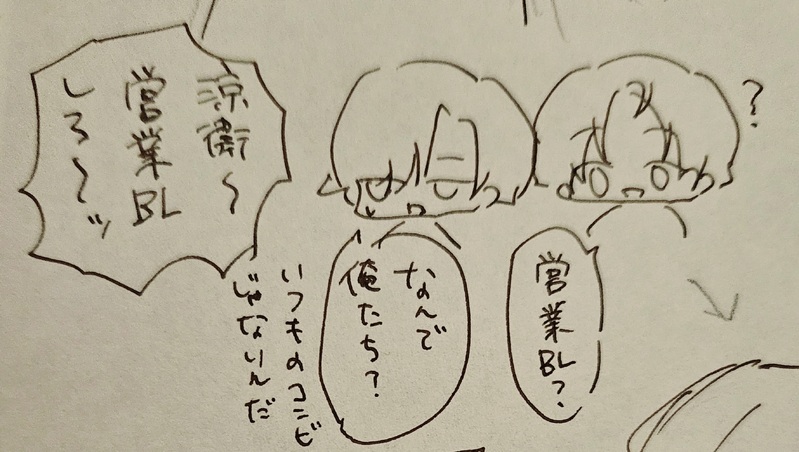 涼衛〜
営業BL
しろ〜ッ
?
営業BL?
なんで
俺たち?
いつものコンビ
じゃないんだ